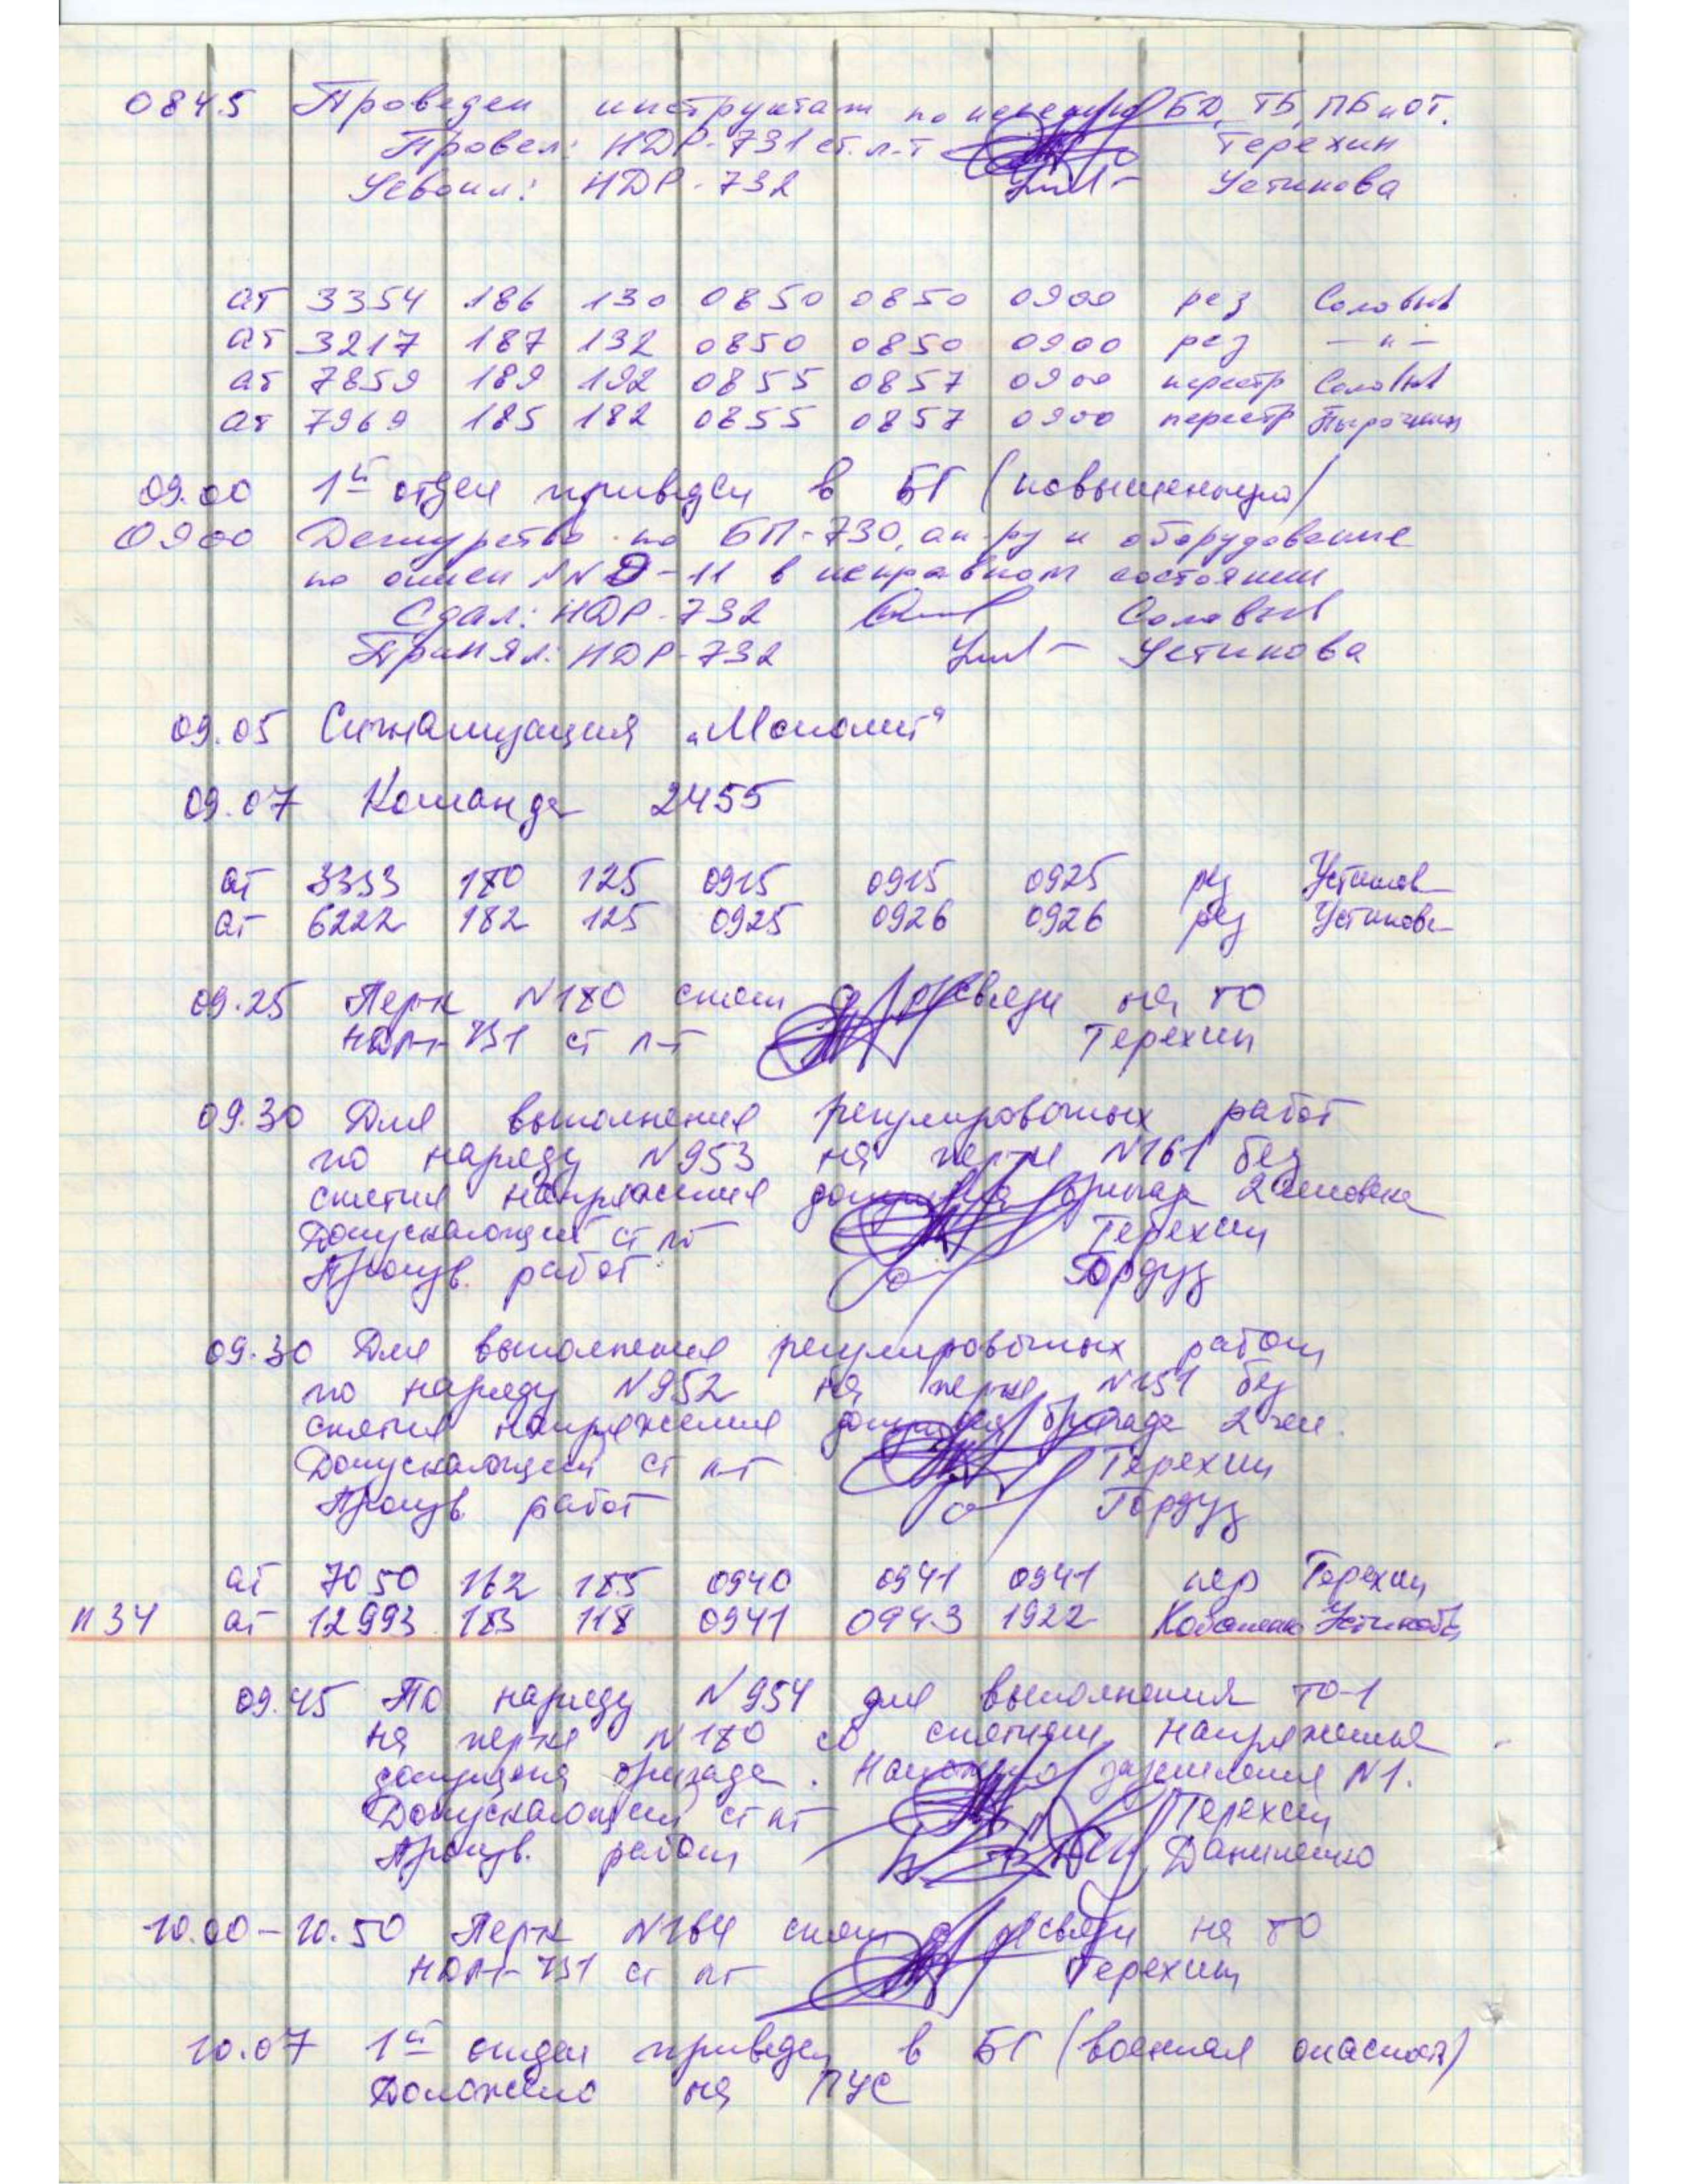 0845 Проведен инструктаж по несению БД, ТБ, ПБ и ОТ.
Провел: НДР-731 ст. л-т Терехин
Усвоил: НДР-732 Устинова
ат 3354 186 130 0850 0850 0900 рез Соловьев
ат 3217 187 132 0850 0850 0900 рез —"—
ат 7859 189 192 0855 0857 0900 перестр Соловьев
ат 7969 185 182 0855 0857 0900 перестр
09.00 1й отдел приведен в БГ (повышенную)
0900 Дежурство по БП-730, ап-ру и оборудование
по описи NN 9-11 в исправном состоянии
Сдал: НДР-732 Соловьев
Принял: НДР-732 Устинова
09.05 Сигнализация „Монолит"
09.07 Команда 2455
ат 3333 180 125 0915 0915 0925 рез Устинова
ат 6222 182 125 0925 0926 0926 рез Устинова
09.25 Перк N180 снят с р/связи на ТО
НДР-731 ст л-т Терехин
09.30 Для выполнения регулировочных работ
по наряду N953 на перке N161 без
снятия напряжения допущена бригада 2 человека
Допускающий ст лт Терехин
Произв. работ Гордуз
09.30 Для выполнения регулировочных работ
по наряду N952 на перке N151 без
снятия напряжения допущена бригада 2 чел.
Допускающий ст л-т Терехин
Произв. работ Гордуз
ат 7050 162 185 0940 0941 0941 пер Терехин
п34 ат 12993 183 118 0941 0943 1922 Устинова
09.45 По наряду N954 для выполнения ТО-1
на перке N180 со снятием напряжения
допущена бригада. Наложено заземление N1.
Допускающий ст лт Терехин
Произв. работ Даниленко
10.00-10.50 Перк N164 снят с р/связи на ТО
НДР-731 ст лт Терехин
10.07 1й отдел приведен в БГ (военная опасность)
Доложено на ПУС